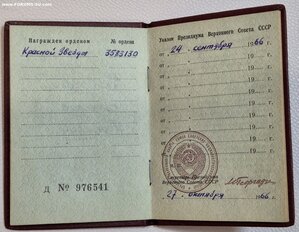 www.FORUMS-SU.com
Награжден орденом № ордена
Красной Звезды 3583130
Д № 976541
Указом Президиума Верховного Совета СССР
от 24 сентября 1966 г.
от 19 г.
от 19 г.
от 19 г.
от 19 г.
от 19 г.
от 19 г.
от 19 г.
Секретарь Президиума
Верховного Совета СССР
27 октября 1966 г.